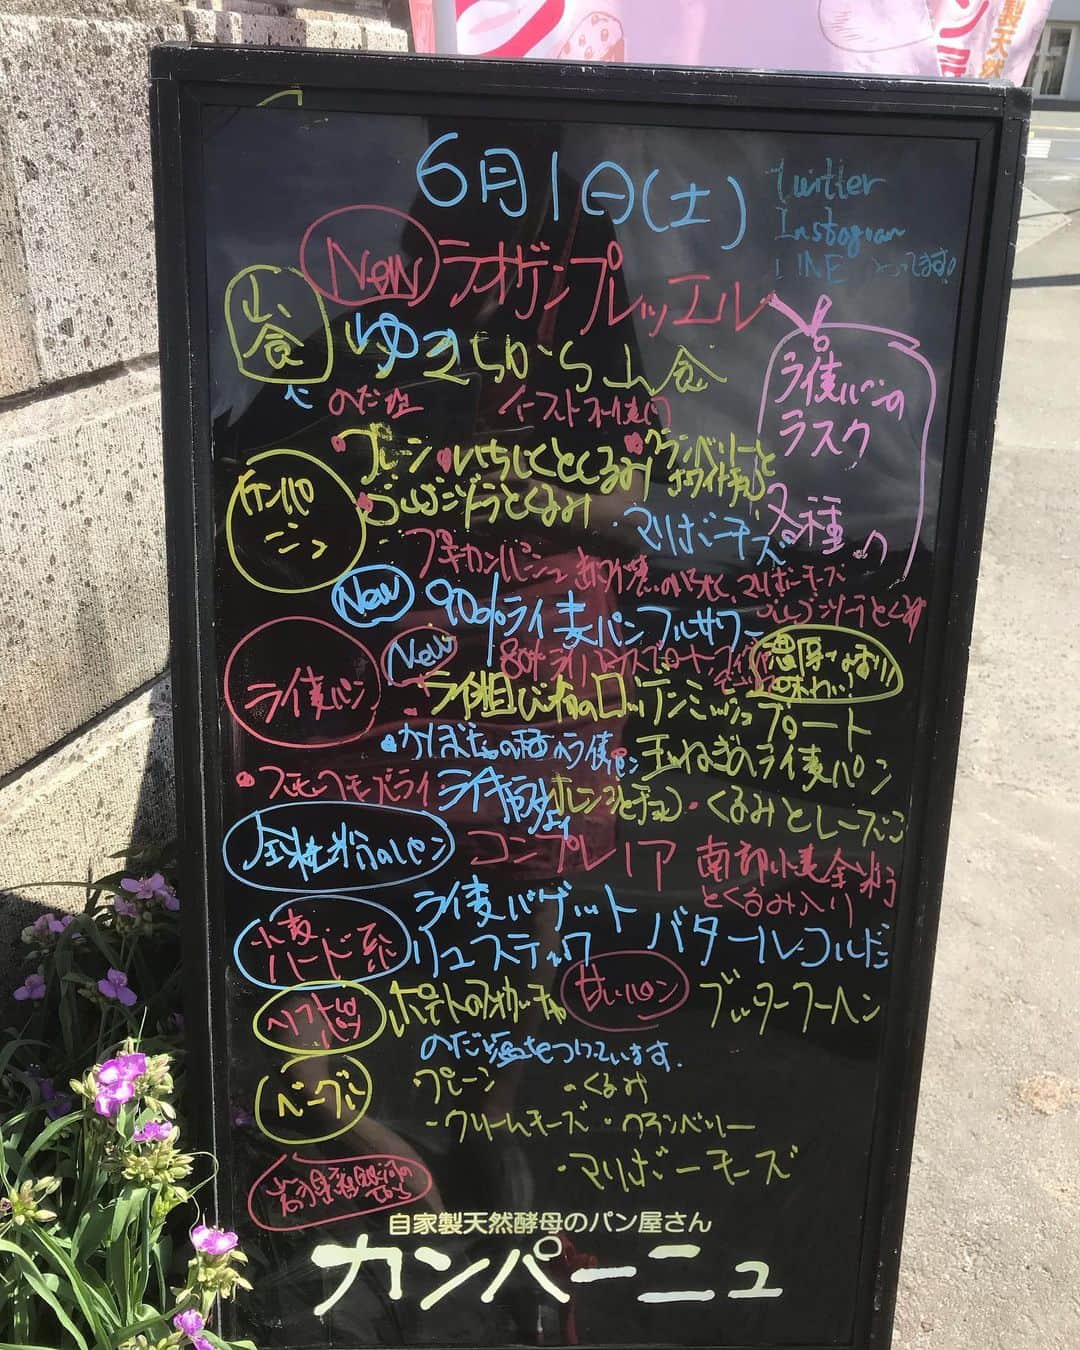 6月1日(土)
Twitter
Instagram
LINE やってます!
New ラオゲンプレッツェル
山食
ゆきちから山食
のだ塩
イースト不使用
ライ麦パンの
ラスク
各種
カンパーニュ
・プレーン ・いちじくとくるみ ・クランベリーと
ホワイトチョコ
・ゴルゴンゾーラとくるみ
・マリボーチーズ
プチカンパーニュ
マリボーチーズ
ゴルゴンゾーラとくるみ
New 90%ライ麦パン フルサワー
New 80%ライ
濃厚な
味わい
ライ麦パン
ライ粗びき
・かぼちゃの種入ライ麦パン
玉ねぎのライ麦パン
オレンジとチョコ ・くるみとレーズン
全粒粉のパン
コンプレ ノア
南部小麦全粒粉
とくるみ入り
小麦・
ハード系
ライ麦バゲット
リュスティック
バタール・コルドン
ソフトパン
ポテトのフォカッチャ
のだ塩をつけています。
甘いパン
ブッタークーヘン
ベーグル
プレーン ・くるみ
・クリームチーズ ・クランベリー
・マリボーチーズ
自家製天然酵母のパン屋さん
カンパーニュ